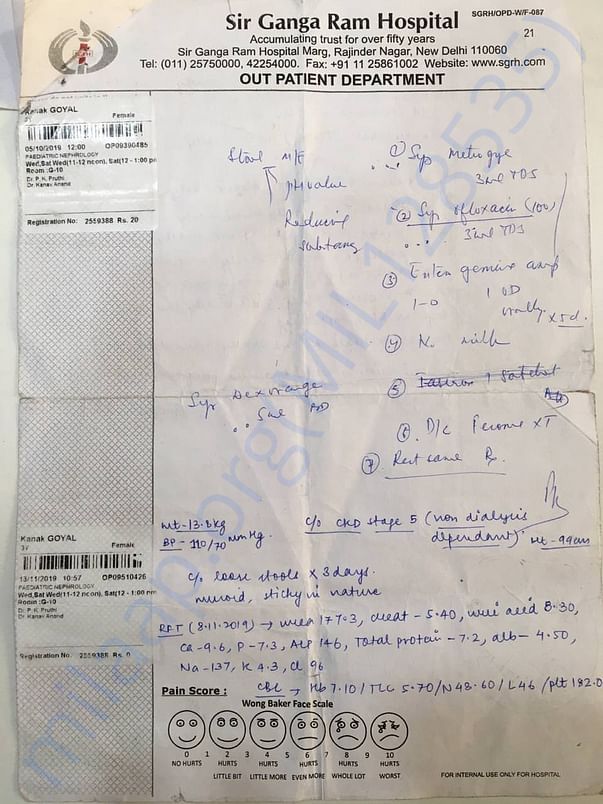 SGRH/OPD-W/F-087
Sir Ganga Ram Hospital
21
Accumulating trust for over fifty years
Sir Ganga Ram Hospital Marg, Rajinder Nagar, New Delhi 110060
Tel: (011) 25750000, 42254000. Fax: +91 11 25861002 Website: www.sgrh.com
OUT PATIENT DEPARTMENT
Kanak GOYAL
3Y Female
05/10/2019 12:00 OP09390485
PAEDIATRIC NEPHROLOGY
Wed,Sat Wed(11-12 noon), Sat(12 - 1:00 pm
Room :G-10
Dr. P. K. Pruthi
Dr. Kanav Anand
Registration No: 2559388 Rs. 20
Stool M/E
pH value
Reducing
substang
① Syp Metrogyl
3ml TDS
② Syp ofloxacin (100)
3ml TDS
③ Entero germina amp
1-0 1 OD
orally x 5d.
④ No milk
⑤ 1 Satchet
⑥ D/C Ferome XT
⑦ Rest same Rx.
Syp Dexorange
5ml BD
Kanak GOYAL
3Y Female
13/11/2019 10:57 OP09510426
PAEDIATRIC NEPHROLOGY
Wed,Sat Wed(11-12 noon), Sat(12 - 1:00 pm
Room :G-10
Dr. P. K. Pruthi
Dr. Kanav Anand
Registration No: 2559388 Rs. 0
wt-13.8kg
BP - 110/70 mmHg.
c/o CKD stage 5 (non dialysis
dependant) Ht - 99cm
c/o loose stools x 3 days.
mucoid, sticky in nature
RFT (8.11.2019) → urea 177.3, creat - 5.40, uric acid 8.30,
Ca - 9.6, P - 7.3, ALP 146, Total protein - 7.2, alb - 4.50,
Na - 137, K 4.3, Cl 96
CBC → Hb 7.10 / TLC 5.70 / N48.60 / L46 / plt 182.0
Pain Score :
Wong Baker Face Scale
0 1 2 3 4 5 6 7 8 9 10
NO HURTS HURTS HURTS HURTS HURTS HURTS
LITTLE BIT LITTLE MORE EVEN MORE WHOLE LOT WORST
FOR INTERNAL USE ONLY FOR HOSPITAL
milaap.org(MIL128535)